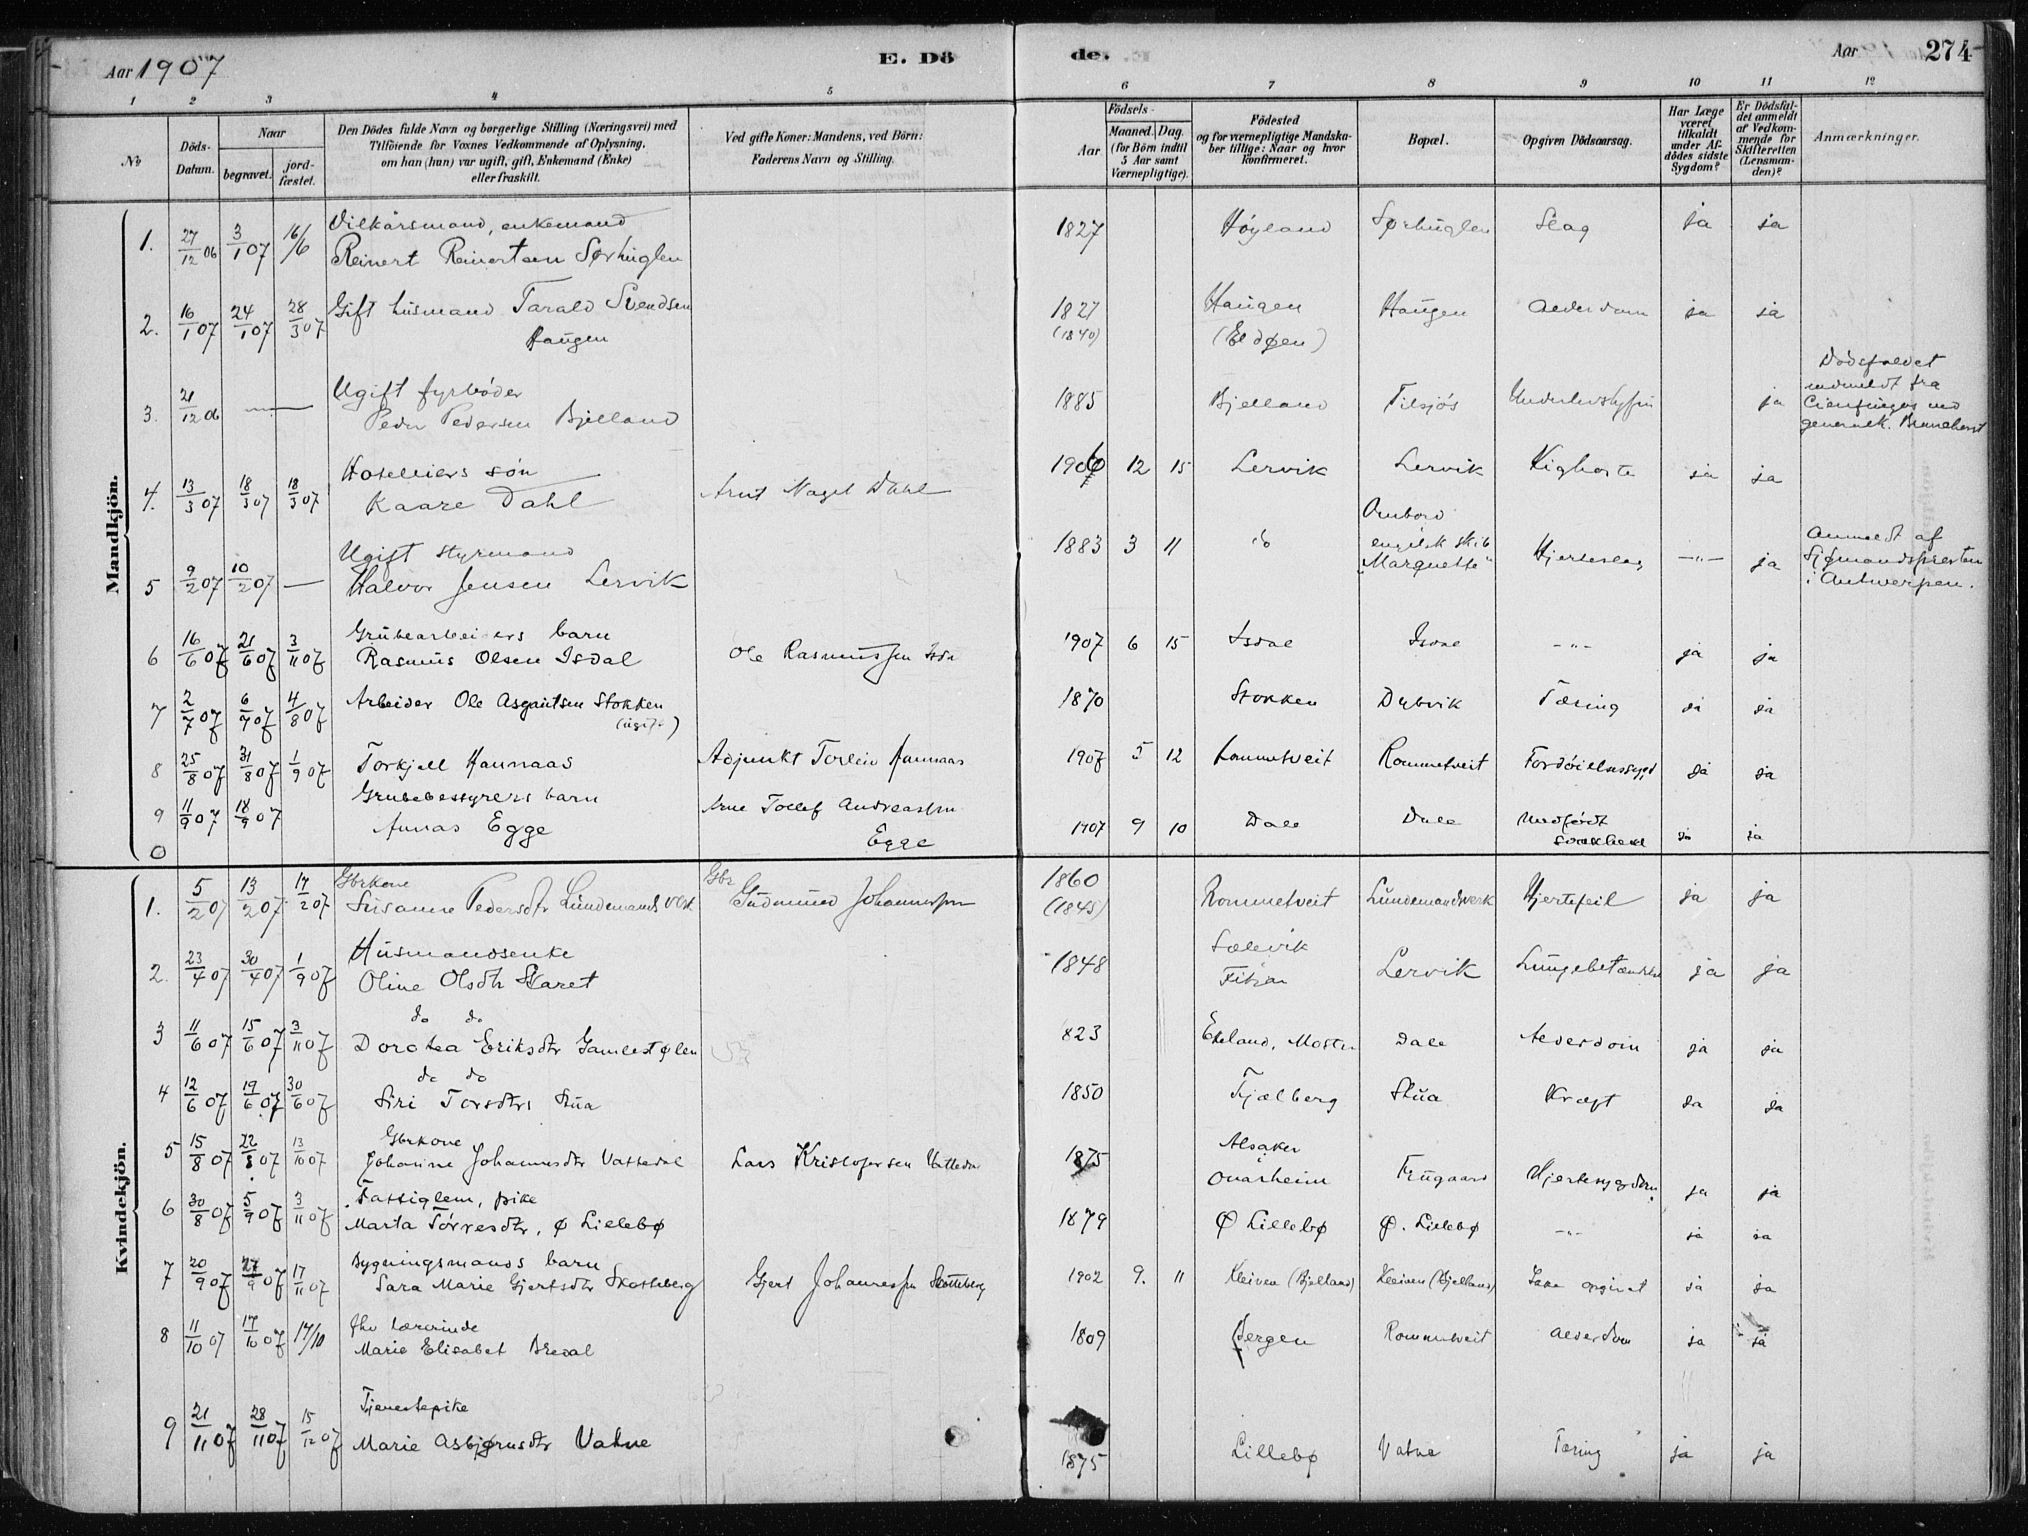 Aar 1907 E. Dö de. Aar 274
1 2 3 4 5 6 7 8 9 10 11 12
No
Döds-Datum.
Naar
begravet.
jord-fæstet.
Den Dödes fulde Navn og borgerlige Stilling (Næringsvei) med
Tilföiende for Voxnes Vedkommende af Oplysning,
om han (hun) var ugift, gift, Enkemand (Enke)
eller fraskilt.
Ved gifte Koner: Mandens, ved Börn:
Faderens Navn og Stilling.
Födsels-
Aar
Maaned. Dag.
(for Börn indtil
5 Aar samt
Værnepligtige).
Födested
og for værnepligtige Mandska-
ber tillige: Naar og hvor
konfirmeret.
Bopæl.
Opgiven Dödsaarsag.
Har Læge
været
tilkaldt
under Af-
dödes sidste
Sygdom?
Er Dödsfal-
det anmeldt
af Vedkom-
mende for
Skifteretten
(Lensman-
den)?
Anmærkninger.
Mandkjön.
1. 27/12 06 3/1 07 16/6 Vilkårsmand, enkemand
Reinert Reinertsen Sørhuglen 1827 Høyland Sørhuglen Slag ja ja
2. 16/1 07 24/1 07 28/3 07 Gift husmand Tarald Svendsen
Haugen 1827 (1840) Haugen (Eldøen) Haugen Alderdom ja ja
3. 21/12 06 — Ugift fyrbøder
Peder Pedersen Bjelland 1885 Bjelland Tilsjøs ja Dødsfaldet
indmeldt fra
Cienfuegos ved
4. 13/3 07 18/3 07 18/3 07 Hoteleiers søn
Kaare Dahl Arnt Nagel Dahl 1906 12 15 Lervik Lervik Kighoste ja ja
5 9/2 07 10/2 07 — Ugift styrmand
Halvor Jensen Lervik 1883 3 11 do Ombord
engelsk skib
"Marquette" Hjerteslag —"— ja Anmeldt af
Sjømandspresten
i Antwerpen.
6 16/6 07 21/6 07 3/11 07 Grubearbeiders barn
Rasmus Olsen Isdal Ole Rasmussen Isda 1907 6 15 Isdal Isdal -"- ja ja
7 2/7 07 6/7 07 4/8 07 Arbeider Ole Asgautsen Stokken
(ugift) 1870 Stokken Dybvik Tæring ja ja
8 25/8 07 31/8 07 1/9 07 Torkjell Hannaas Adjunkt Torleiv Hannaas 1907 5 12 Rommetveit Rommetveit Fordøielsessygd ja ja
9 11/9 07 18/9 07 Grubebestyrers barn
Annas Egge Arne Tollef Andreassen
Egge 1907 9 10 Dale Dale Medfødt
svakhed ja ja
0
Kvindekjön.
1. 5/2 07 13/2 07 17/2 07 Gbrkone
Susanne Pedersdtr Lundemandsverk Gbr Gudmund Johannessen 1860 (1845) Rommetveit Lundemandsverk Hjertefeil ja ja
2. 23/4 07 30/4 07 1/9 07 Husmandsenke
Oline Olsdtr Skaret 1848 Sælevik
Fitjar Lervik Lungebetændelse ja ja
3 11/6 07 15/6 07 3/11 07 do do
Dorotea Eriksdtr Gamlestølen 823 Ekeland, Moster Dale Alderdom ja ja
4 12/6 07 19/6 07 30/6 07 do do
Siri Torsdtr Stua 1850 Fjælberg Stua Kræft ja ja
5 15/8 07 22/8 07 13/10 07 Gbrkone
Johanne Johannesdtr Vattedal Lars Kristofersen Vattedal 1875 Alsaker
Onarheim Frugaard Hjertesygdom ja ja
6 30/8 07 5/9 07 3/11 07 Fattiglem, pike
Marta Tørresdtr. Ø Lillebø 1879 Ø Lillebø Ø. Lillebø -"- ja ja
7 20/9 07 27/9 07 17/11 07 Bygningsmands barn
Sara Marie Gjertsdtr Skotteberg Gjert Johannessen Skotteberg 1902 9. 11 Kleiven (Bjelland) Kleiven (Bjelland) Ikke opgivet ja ja
8 11/10 07 17/10 07 17/10 fhv lærerinde
Marie Elisabet Bredal 1809 Bergen Rommetveit Alderdom ja ja
9 21/11 07 28/11 07 15/12 07 Tjenestepike
Marie Asbjørnsdtr Vatne 1875 Lillebø Vatne Tæring ja ja